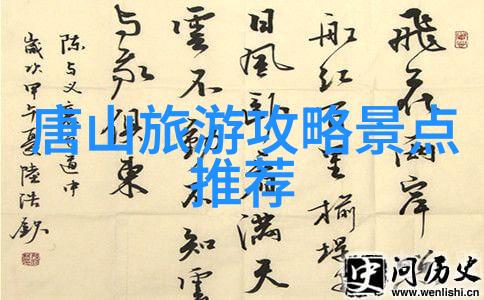 唐山旅游攻略景点
推荐
飛花兩岸
船紅百里榆堤
日風卧看滿天
雲不動不知雲
与我俱東
陈与义襄邑道中
歲次甲午夏陸浩
史问历史
www.wenlishi.cn